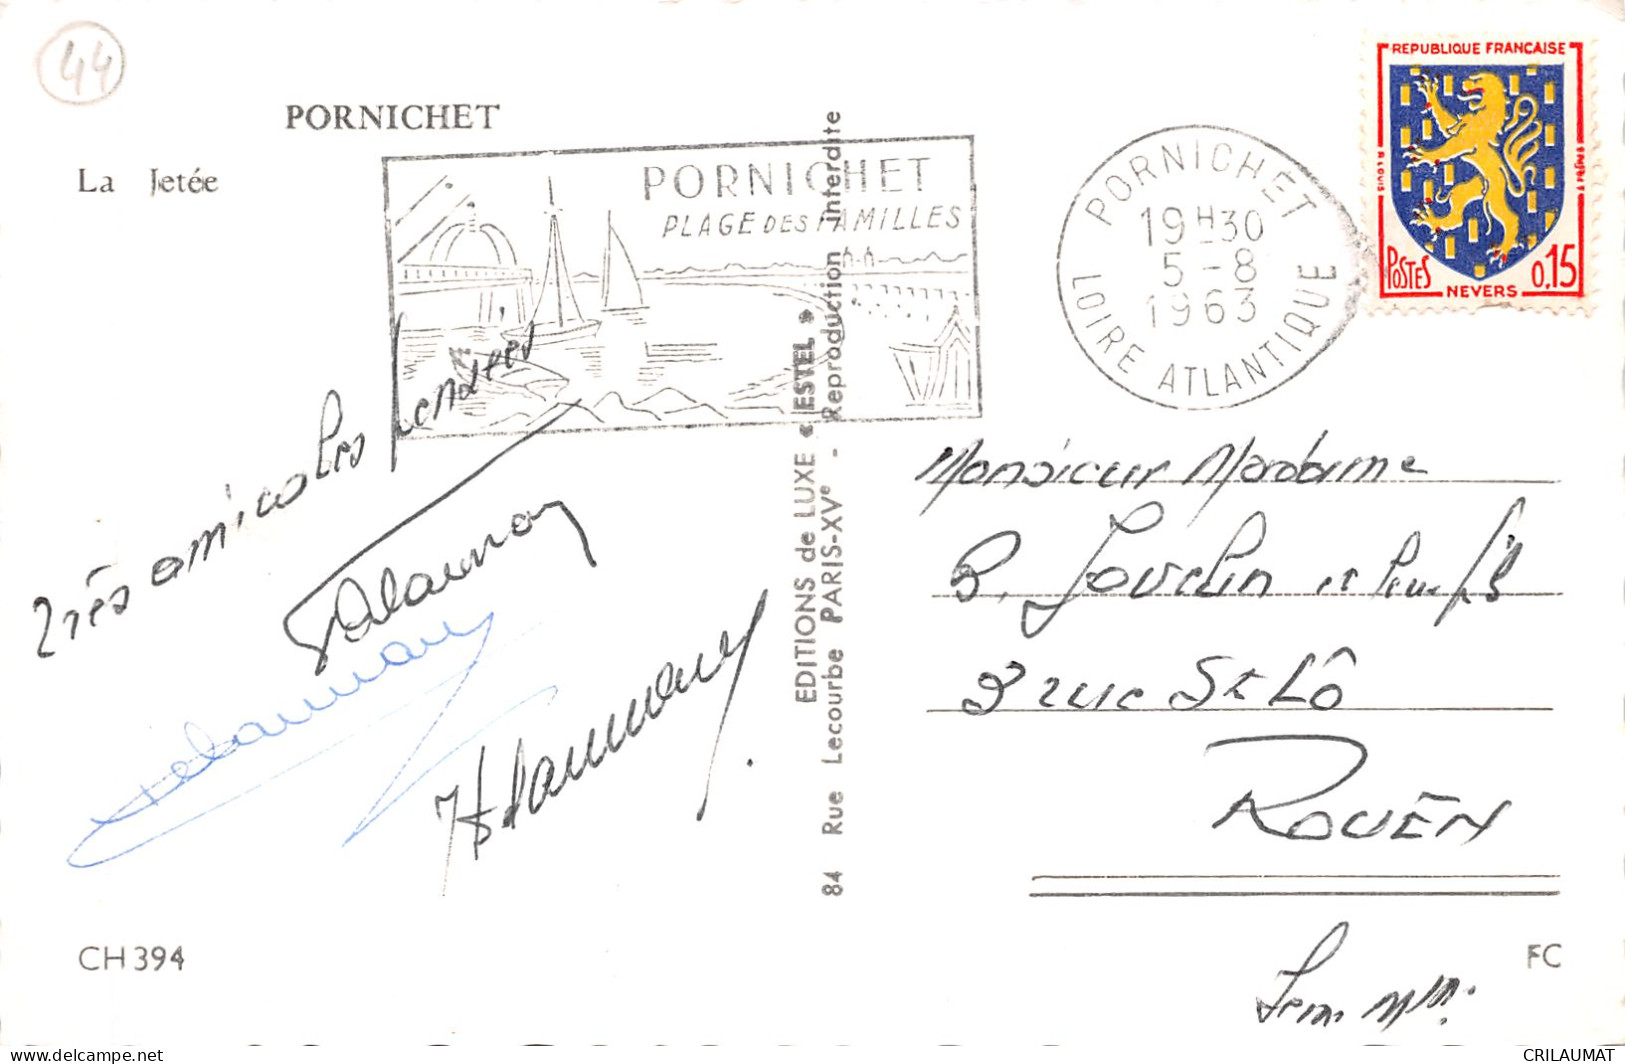 44
PORNICHET
La Jetée
PORNICHET
PLAGE DES FAMILLES
PORNICHET
19H30
5-8
1963
LOIRE ATLANTIQUE
REPUBLIQUE FRANÇAISE
POSTES
0,15
NEVERS
Très amicales pensées
Delaunay
Delaunay
Delaunay
EDITIONS de LUXE « ESTEL »
84 Rue Lecourbe PARIS-XVe - Reproduction interdite
Monsieur Madame
B. Jourdin et leur fils
3 rue St Lô
ROUEN
CH 394
FC
CRILAUMAT